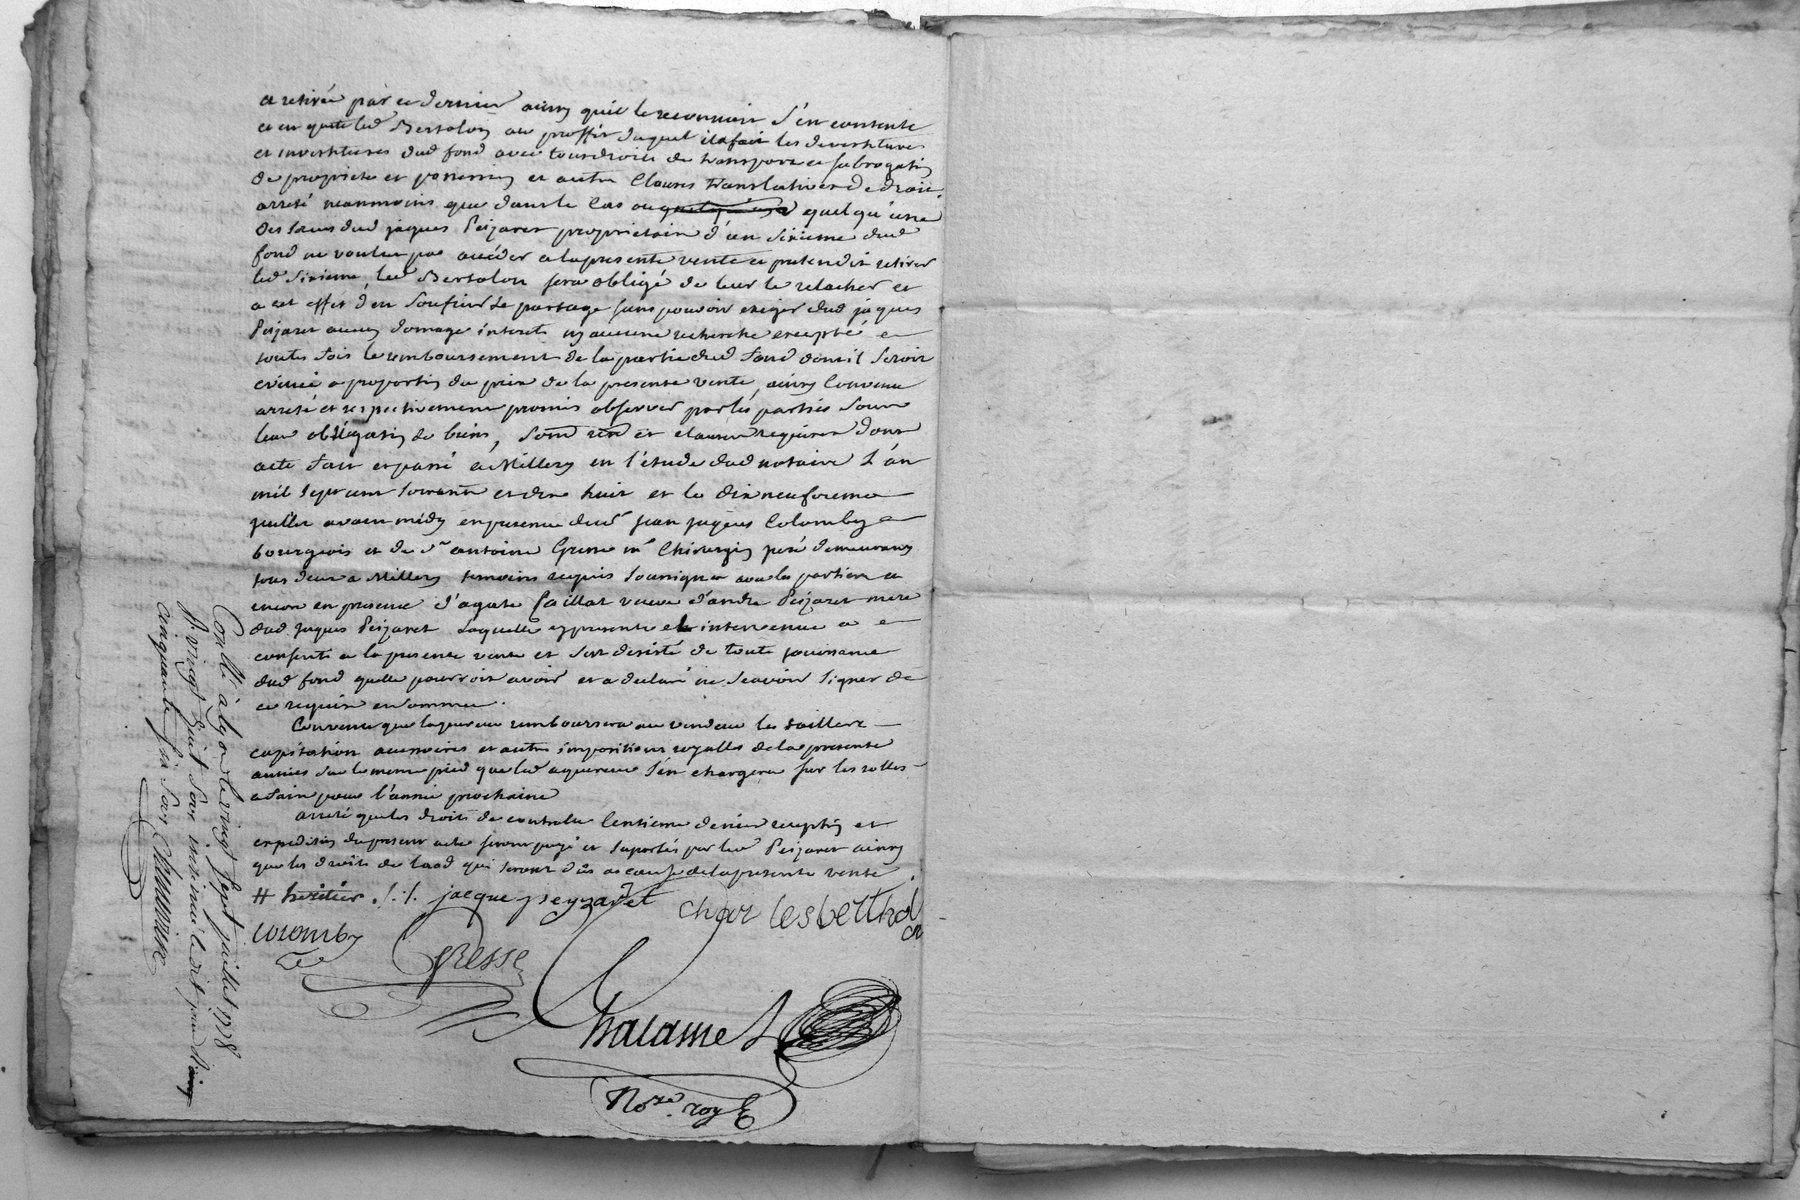 et retirée par ce dernier ainsy qu'il le reconnoit s'en contente
et en quite led Bertolon au proffit duquel il a fait les devestitures
et investitures dud fond avec tous droits de transport et subrogation
de propriete et possession et autre Clauses translatives de droit
arreté neanmoins que dans le Cas ou quelqu'une
des sœurs dud jaques Peijaret proprietaire d'un sixieme dud
fond ne voulut pas accéder a la presente vente et pretendit retirer
led sixieme led Bertolon sera obligé de leur le relacher et
a cet effet d'en soufrir le partage sans pouvoir exiger dud jaques
Peijaret aucun domage interets ny aucune recherche excepté
toutes fois le remboursement de la partie dud fond dont il seroit
evincé a proportion du prix de la presente vente, ainsy Convenu
arreté et respectivement promis observer par les parties sous
leur obligation de biens, soum ren et clauses requises dont
acte fait et passé a Millery en l'étude dud notaire L'an
mil sept cent soixante et dix huit et le dix neuf
juillet avant midy en presence de sr jean jaques Colomby
bourgeois et de sr antoine Gresse me Chirurgien juré demeurants
tous deux a Millery temoins requis soussignes avec les parties et
encore en presence d'agate faillat veuve d'andre Peijaret mere
dud jaques Peijaret laquelle cy presente est intervenue a
consenti a la presente vente et s'est desisté de toute jouissance
dud fond quelle pourroit avoir et a declaré ne scavoir signer de
ce requise et sommée.
Convenu que laquereur remboursera au vendeur les tailles
capitation accessoires et autres impositions royalles de la presente
année sur le meme pied que led aquereur s'en chargera sur les rolles
a faire pour l'année prochaine
arreté que les droits de controlle Centieme denier reception et
expedition du present acte seront payé et suportés par led Peijaret ainsy
que les droits de laod qui seront dûs a cause de la presente vente
# heritier ./. /. jacque peyzaret charles berthol
on
Colomby
GRESSE
Chalamel
Nore. royl
Conllé à Lyon le vingt sept juillet 1778
R vingt huit sar insinué led jour
cinquante six sar